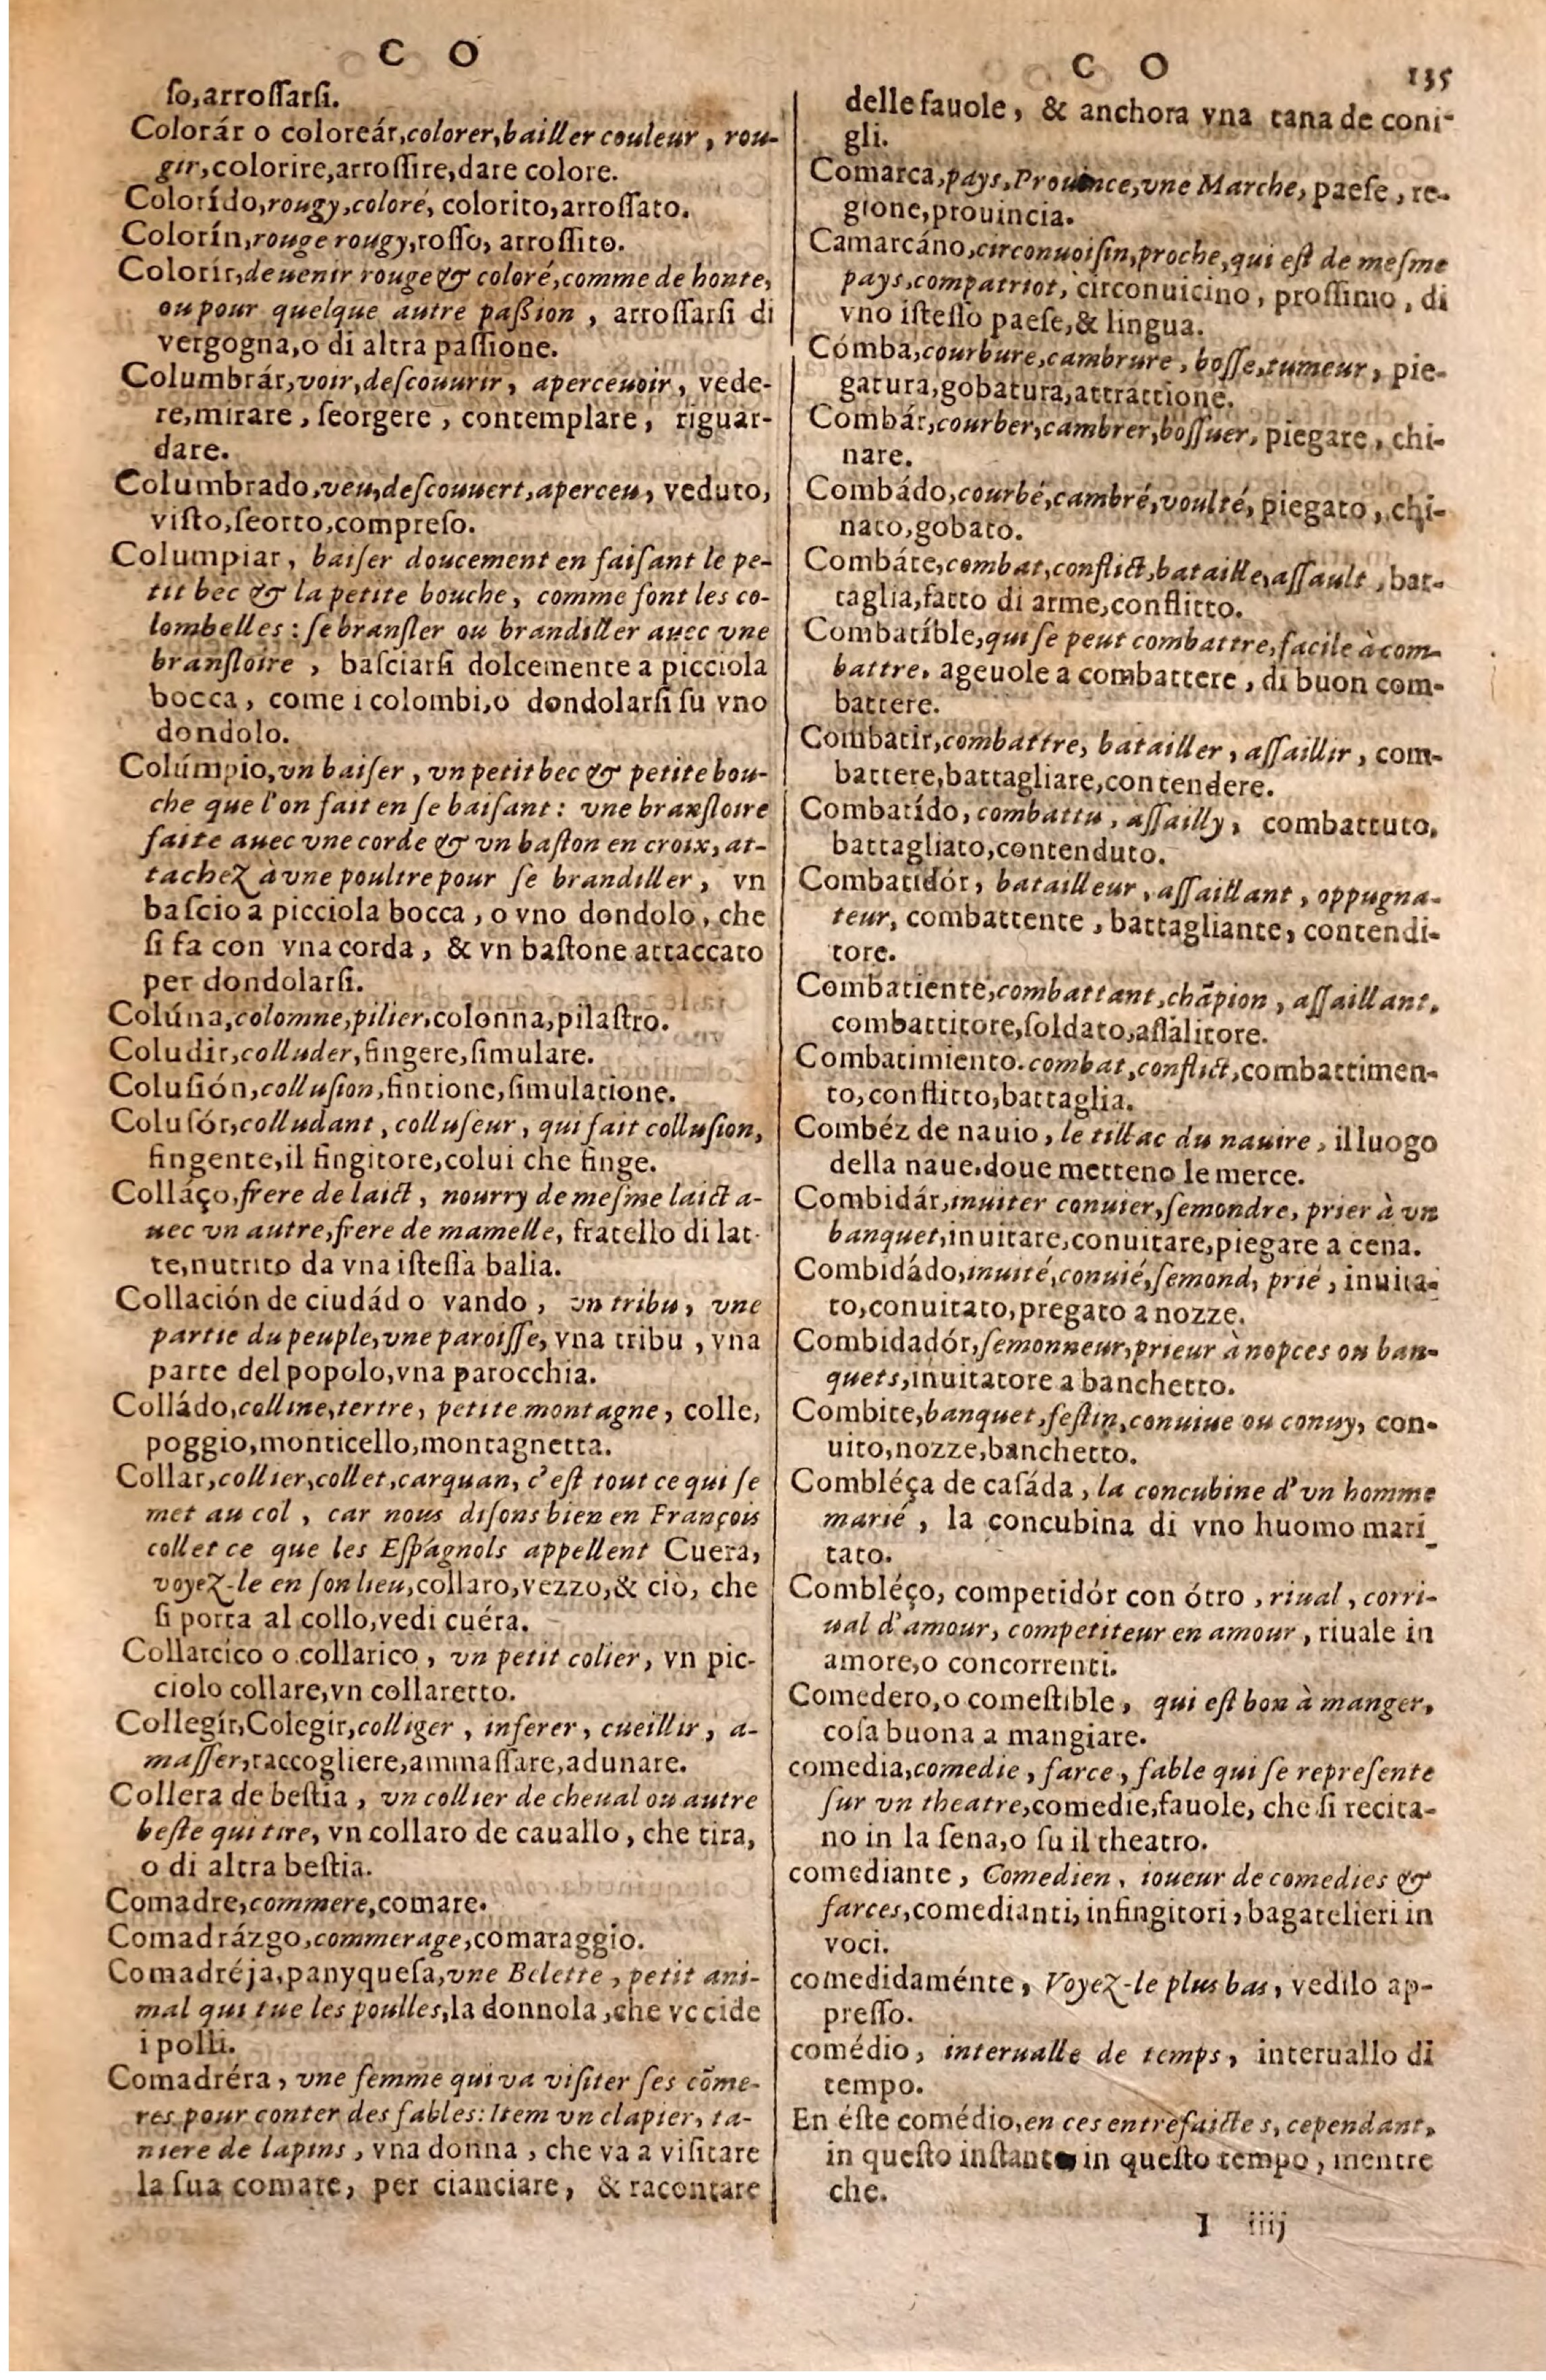 C O
ſo,arroſſarſi.
Colorár o coloreár,colorer,bailler couleur, rou-
gir,colorire,arroſſire,dare colore.
Colorído,rougy,coloré, colorito,arroſſato.
Colorín,rouge rougy,roſſo, arroſſito.
Colorír,deuenir rouge & coloré,comme de honte,
ou pour quelque autre paßion , arroſſarſi di
vergogna,o di altra paſſione.
Columbrár,voir,deſcouurir, aperceuoir, vede-
re,mirare, ſeorgere , contemplare, riguar-
dare.
Columbrado,veu,deſcouuert,aperceu, veduto,
viſto,ſeorto,compreſo.
Columpiar, baiſer doucement en faiſant le pe-
tit bec & la petite bouche, comme font les co-
lombelles: ſe branſler ou brandiller auec vne
branſloire , baſciarſi dolcemente a picciola
bocca, come i colombi,o dondolarſi ſu vno
dondolo.
Colúmpio,vn baiſer, vn petit bec & petite bou-
che que l'on fait en ſe baiſant: vne branſloire
faite auec vne corde & vn baſton en croix, at-
tachez à vne poultre pour ſe brandiller, vn
baſcio a picciola bocca, o vno dondolo, che
ſi fa con vna corda, & vn baſtone attaccato
per dondolarſi.
Colúna,colomne,pilier,colonna,pilaſtro.
Coludir,colluder,fingere,ſimulare.
Coluſión,colluſion,fintione,ſimulatione.
Coluſór,colludant, colluſeur, qui fait colluſion,
fingente,il fingitore,colui che finge.
Colláço,frere de laict, nourry de meſme laict a-
uec vn autre,frere de mamelle, fratello di lat-
te,nutrito da vna iſteſſa balia.
Collación de ciudád o vando, vn tribu, vne
partie du peuple,vne paroiſſe, vna tribu, vna
parte del popolo,vna parocchia.
Colládo,colline,tertre, petite montagne, colle,
poggio,monticello,montagnetta.
Collar,collier,collet,carquan, c'eſt tout ce qui ſe
met au col, car nous diſons bien en François
collet ce que les Eſpagnols appellent Cuera,
voyez-le en ſon lieu,collaro,vezzo,& ciò, che
ſi porta al collo,vedi cuéra.
Collarcico o collarico, vn petit colier, vn pic-
ciolo collare,vn collaretto.
Collegír,Colegir,colliger, inferer, cueillir, a-
maſſer,raccogliere,ammaſſare,adunare.
Collera de beſtia, vn collier de cheual ou autre
beſte qui tire, vn collaro de cauallo, che tira,
o di altra beſtia.
Comadre,commere,comare.
Comadrázgo,commerage,comaraggio.
Comadréja,panyqueſa,vne Belette, petit ani-
mal qui tue les poulles,la donnola,che vccide
i polli.
Comadréra, vne femme qui va viſiter ſes cõme-
res pour conter des fables: Item vn clapier, ta-
niere de lapins, vna donna, che va a viſitare
la ſua comare, per cianciare, & racontare
C O
135
delle fauole, & anchora vna tana de coni-
gli.
Comarca,pays,Prouince,vne Marche, paeſe, re-
gione,prouincia.
Camarcáno,circonuoiſin,proche,qui eſt de meſme
pays,compatriot, circonuicino, proſſimo, di
vno iſteſſo paeſe,& lingua.
Cómba,courbure,cambrure, boſſe,tumeur, pie-
gatura,gobatura,attrattione.
Combár,courber,cambrer,boſſuer, piegare, chi-
nare.
Combádo,courbé,cambré,voulté, piegato, chi-
nato,gobato.
Combáte,combat,conflict,bataille,aſſault, bat-
taglia,fatto di arme,conflitto.
Combatíble,qui ſe peut combattre,facile à com-
battre, ageuole a combattere, di buon com-
battere.
Combatir,combattre, batailler, aſſaillir, com-
battere,battagliare,contendere.
Combatído, combattu, aſſailly, combattuto,
battagliato,contenduto.
Combatidór, batailleur, aſſaillant, oppugna-
teur, combattente, battagliante, contendi-
tore.
Combatiente,combattant,chãpion, aſſaillant,
combattitore,ſoldato,aſſalitore.
Combatimiento.combat,conflict,combattimen-
to,conflitto,battaglia.
Combéz de nauio, le tillac du nauire, il luogo
della naue,doue metteno le merce.
Combidár,inuiter conuier,ſemondre, prier à vn
banquet,inuitare,conuitare,piegare a cena.
Combidádo,inuité,conuié,ſemond, prié, inuita-
to,conuitato,pregato a nozze.
Combidadór,ſemonneur,prieur à nopces ou ban-
quets,inuitatore a banchetto.
Combite,banquet,feſtin,conuiue ou conuy, con-
uito,nozze,banchetto.
Combléça de caſáda, la concubine d'vn homme
marié, la concubina di vno huomo mari-
tato.
Combléço, competidór con ótro, riual, corri-
ual d'amour, competiteur en amour, riuale in
amore,o concorrenti.
Comedero,o comeſtible, qui eſt bon à manger,
coſa buona a mangiare.
comedia,comedie, farce, fable qui ſe repreſente
ſur vn theatre,comedie,fauole, che ſi recita-
no in la ſena,o ſu il theatro.
comediante, Comedien, ioueur de comedies &
farces,comedianti, infingitori, bagatelieri in
voci.
comedidaménte, Voyez-le plus bas, vedilo ap-
preſſo.
comédio, interualle de temps, interuallo di
tempo.
En éſte comédio,en ces entrefaictes, cependant,
in queſto inſtante in queſto tempo, mentre
che.
I iiij